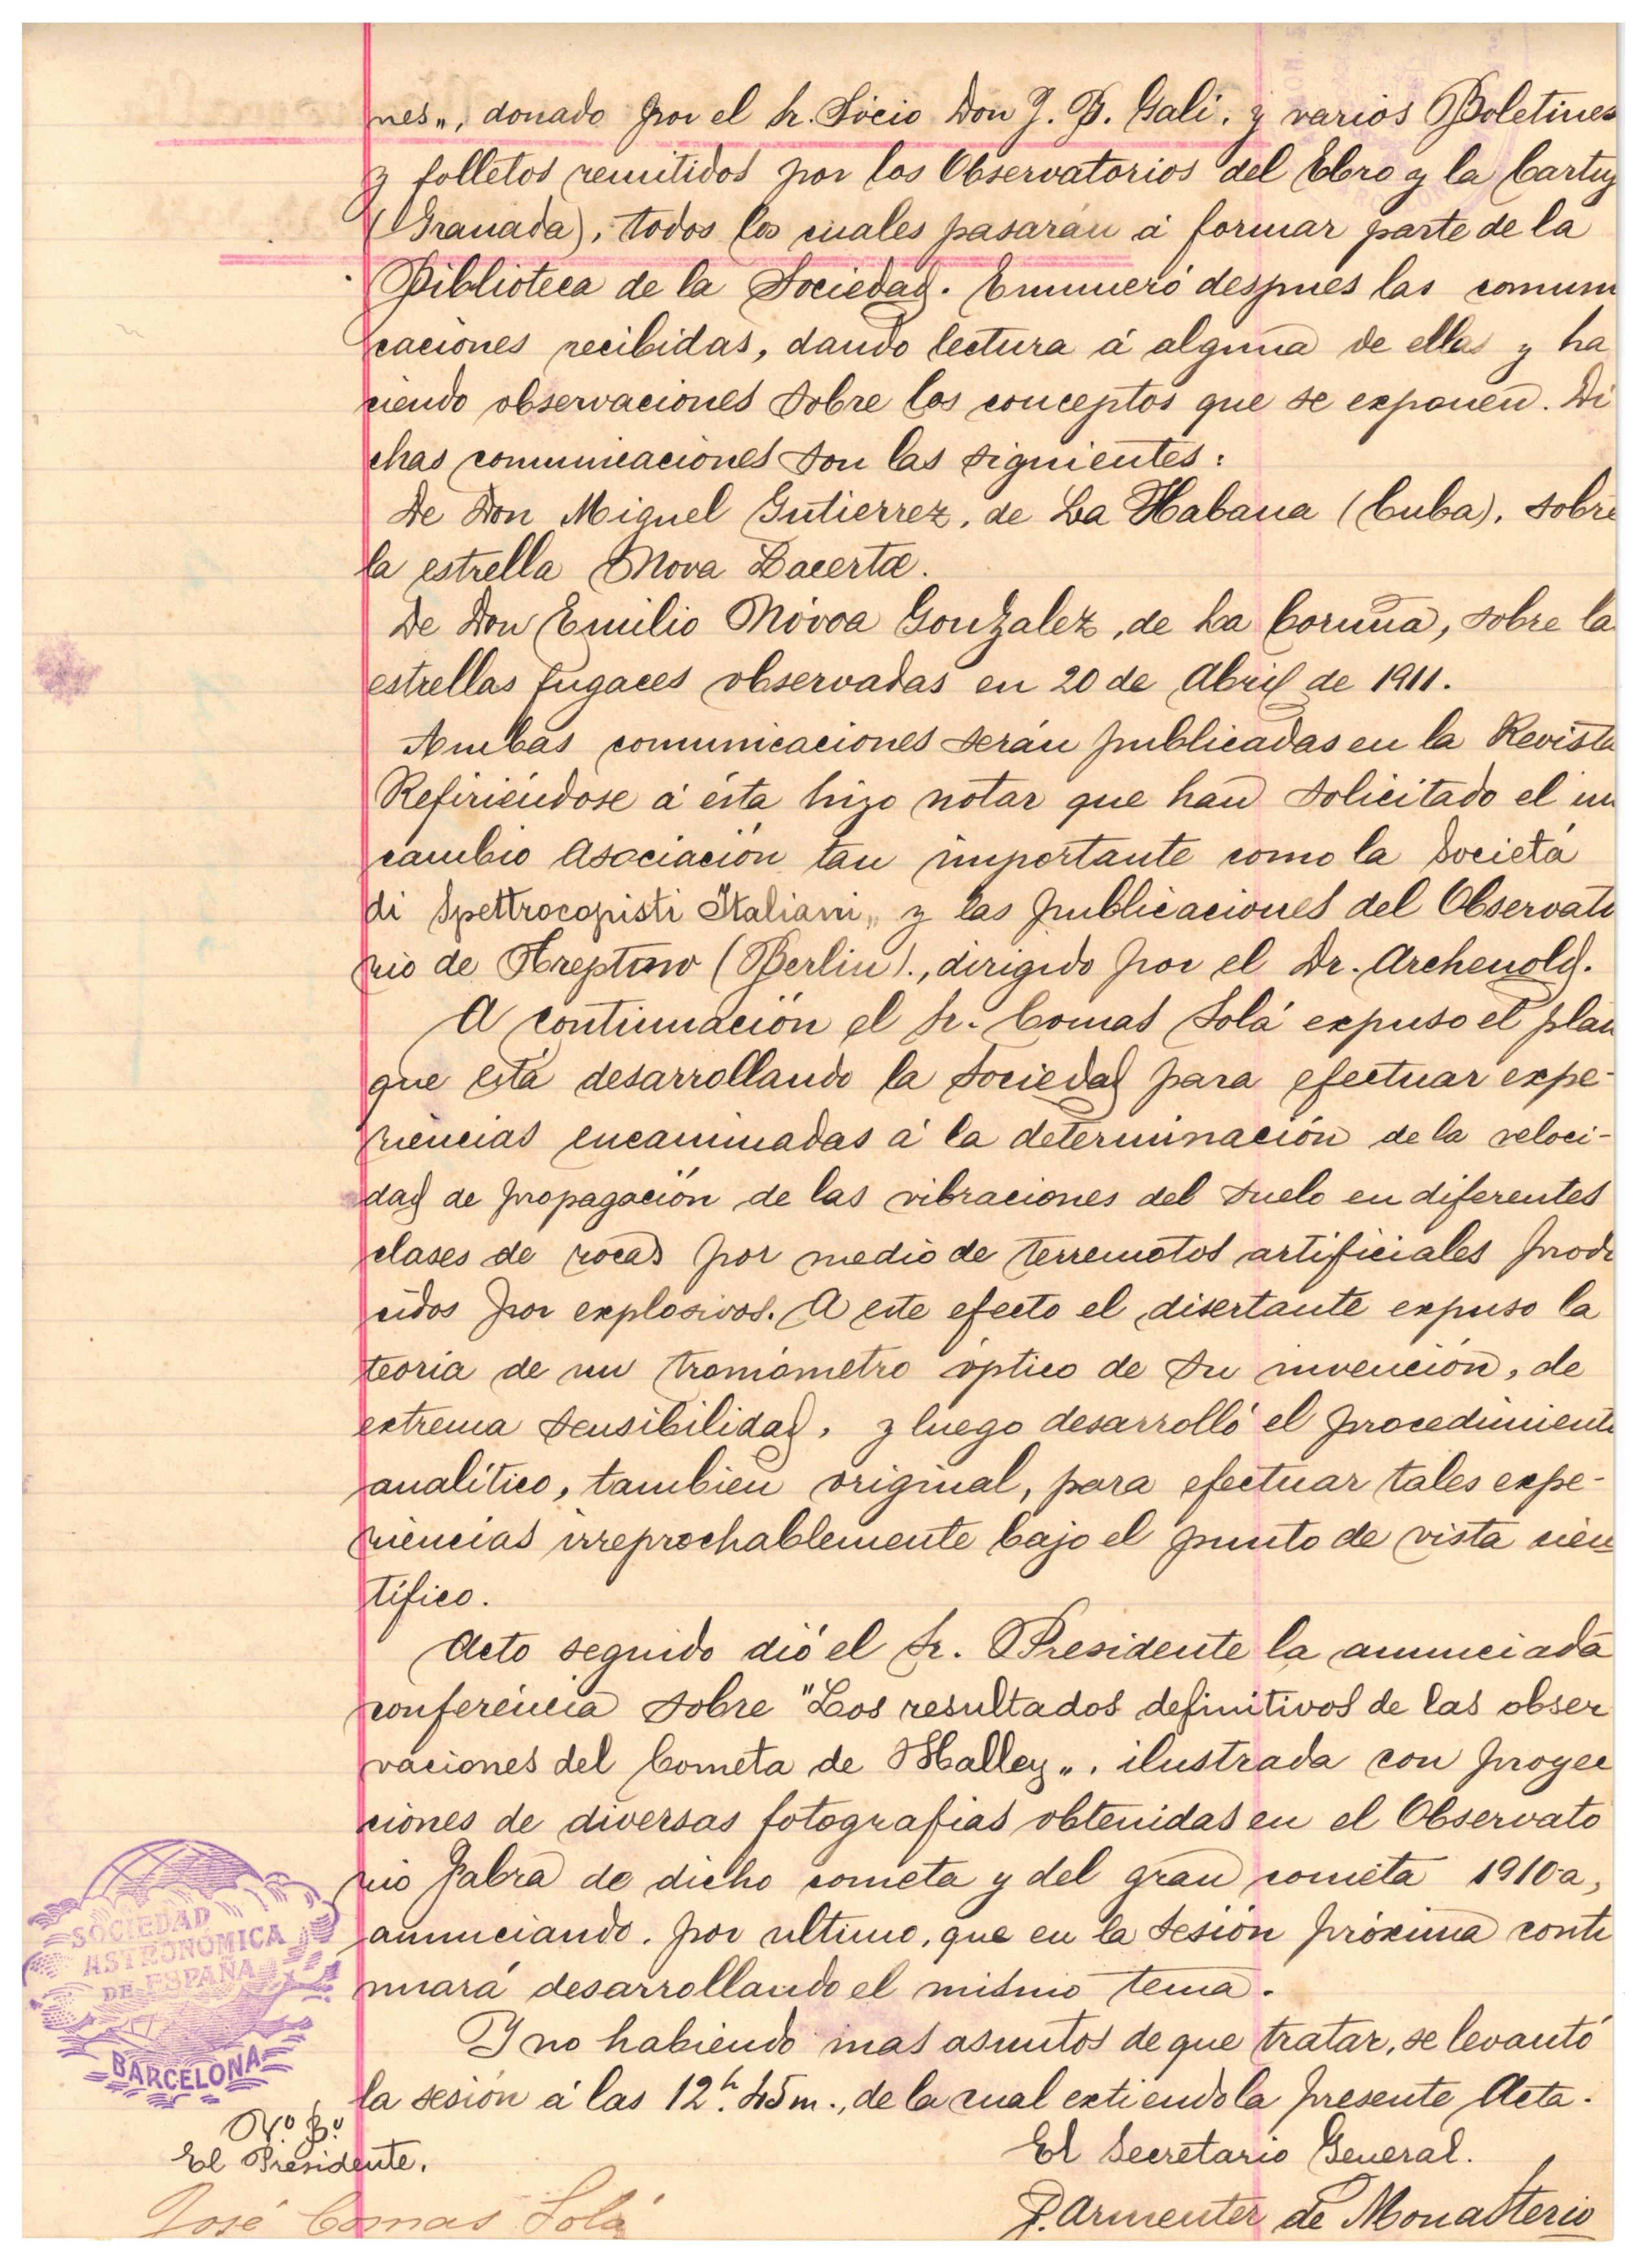 nes„, donado por el Sr. Sócio Don J. B. Gali, y varios Boletines
y folletos remitidos por los Observatorios del Ebro y la Cartuj
(Granada), todos los cuales pasarán á formar parte de la
Biblioteca de la Sociedad. Enumeró despues las comuni
caciones recibidas, dando lectura á alguna de ellas y ha
ciendo observaciones sobre los conceptos que se exponen. Di
chas comunicaciones son las siguientes:
De Don Miguel Gutierrez, de La Habana (Cuba), sobre
la estrella Nova Lacertæ.
De Don Emilio Nóvoa Gonzalez, de La Coruña, sobre la
estrellas fugaces observadas en 20 de Abril de 1911.
Ambas comunicaciones serán publicadas en la Revista
Refiriéndose á ésta hizo notar que han solicitado el in
cambio Asociación tan importante como la Societá
di Spettrocopisti Italiani„ y las publicaciones del Observato
rio de Treptow (Berlin)., dirigido por el Dr. Archenold.
A continuación el Sr. Comas Solá expuso el plan
que está desarrollando la Sociedad para efectuar expe-
riencias encaminadas á la determinación de la veloci-
dad de propagación de las vibraciones del suelo en diferentes
clases de rocas por medio de terremotos artificiales produ
cidos por explosivos. A este efecto el disertante expuso la
teoría de un tromómetro óptico de su invención, de
extrema sensibilidad, y luego desarrolló el procedimiento
analítico, tambien original, para efectuar tales expe-
riencias irreprochablemente bajo el punto de vista cien
tífico.
Acto seguido dió el Sr. Presidente la anunciada
conferéncia sobre "Los resultados definitivos de las obser
vaciones del Cometa de Halley„, ilustrada con proyec
ciones de diversas fotografías obtenidas en el Observato
rio Fabra de dicho cometa y del gran cometa 1910-a,
anunciando, por ultimo, que en la sesión próxima conti
nuará desarrollando el mismo tema.
Y no habiendo mas asuntos de que tratar, se levantó
la sesión á las 12h. 45m., de la cual extiendo la presente Acta.
SOCIEDAD
ASTRONÓMICA
DE ESPAÑA
BARCELONA
Vº. Bº.
El Presidente,
José Comas Solá
El Secretario General.
P. Armenter de Monasterio